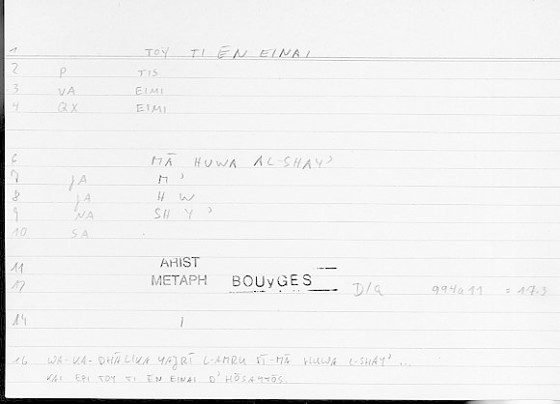 1 TOY TI ĒN EINAI
2 P TIS
3 VA EIMI
4 QX EIMI
6 MĀ HUWA AL-SHAYʾ
7 JA M ʾ
8 JA H W
9 NA SH Y ʾ
10 SA .
11 ARIST
12 METAPH BOUyGES D/a 994a11 = 17-3
14 1
16 WA-KA-DHĀLIKA YAJRĪ L-AMRU FĪ-MĀ HUWA L-SHAYʾ ...
KAI EPI TOY TI ĒN EINAI D' HŌSAYTŌS.